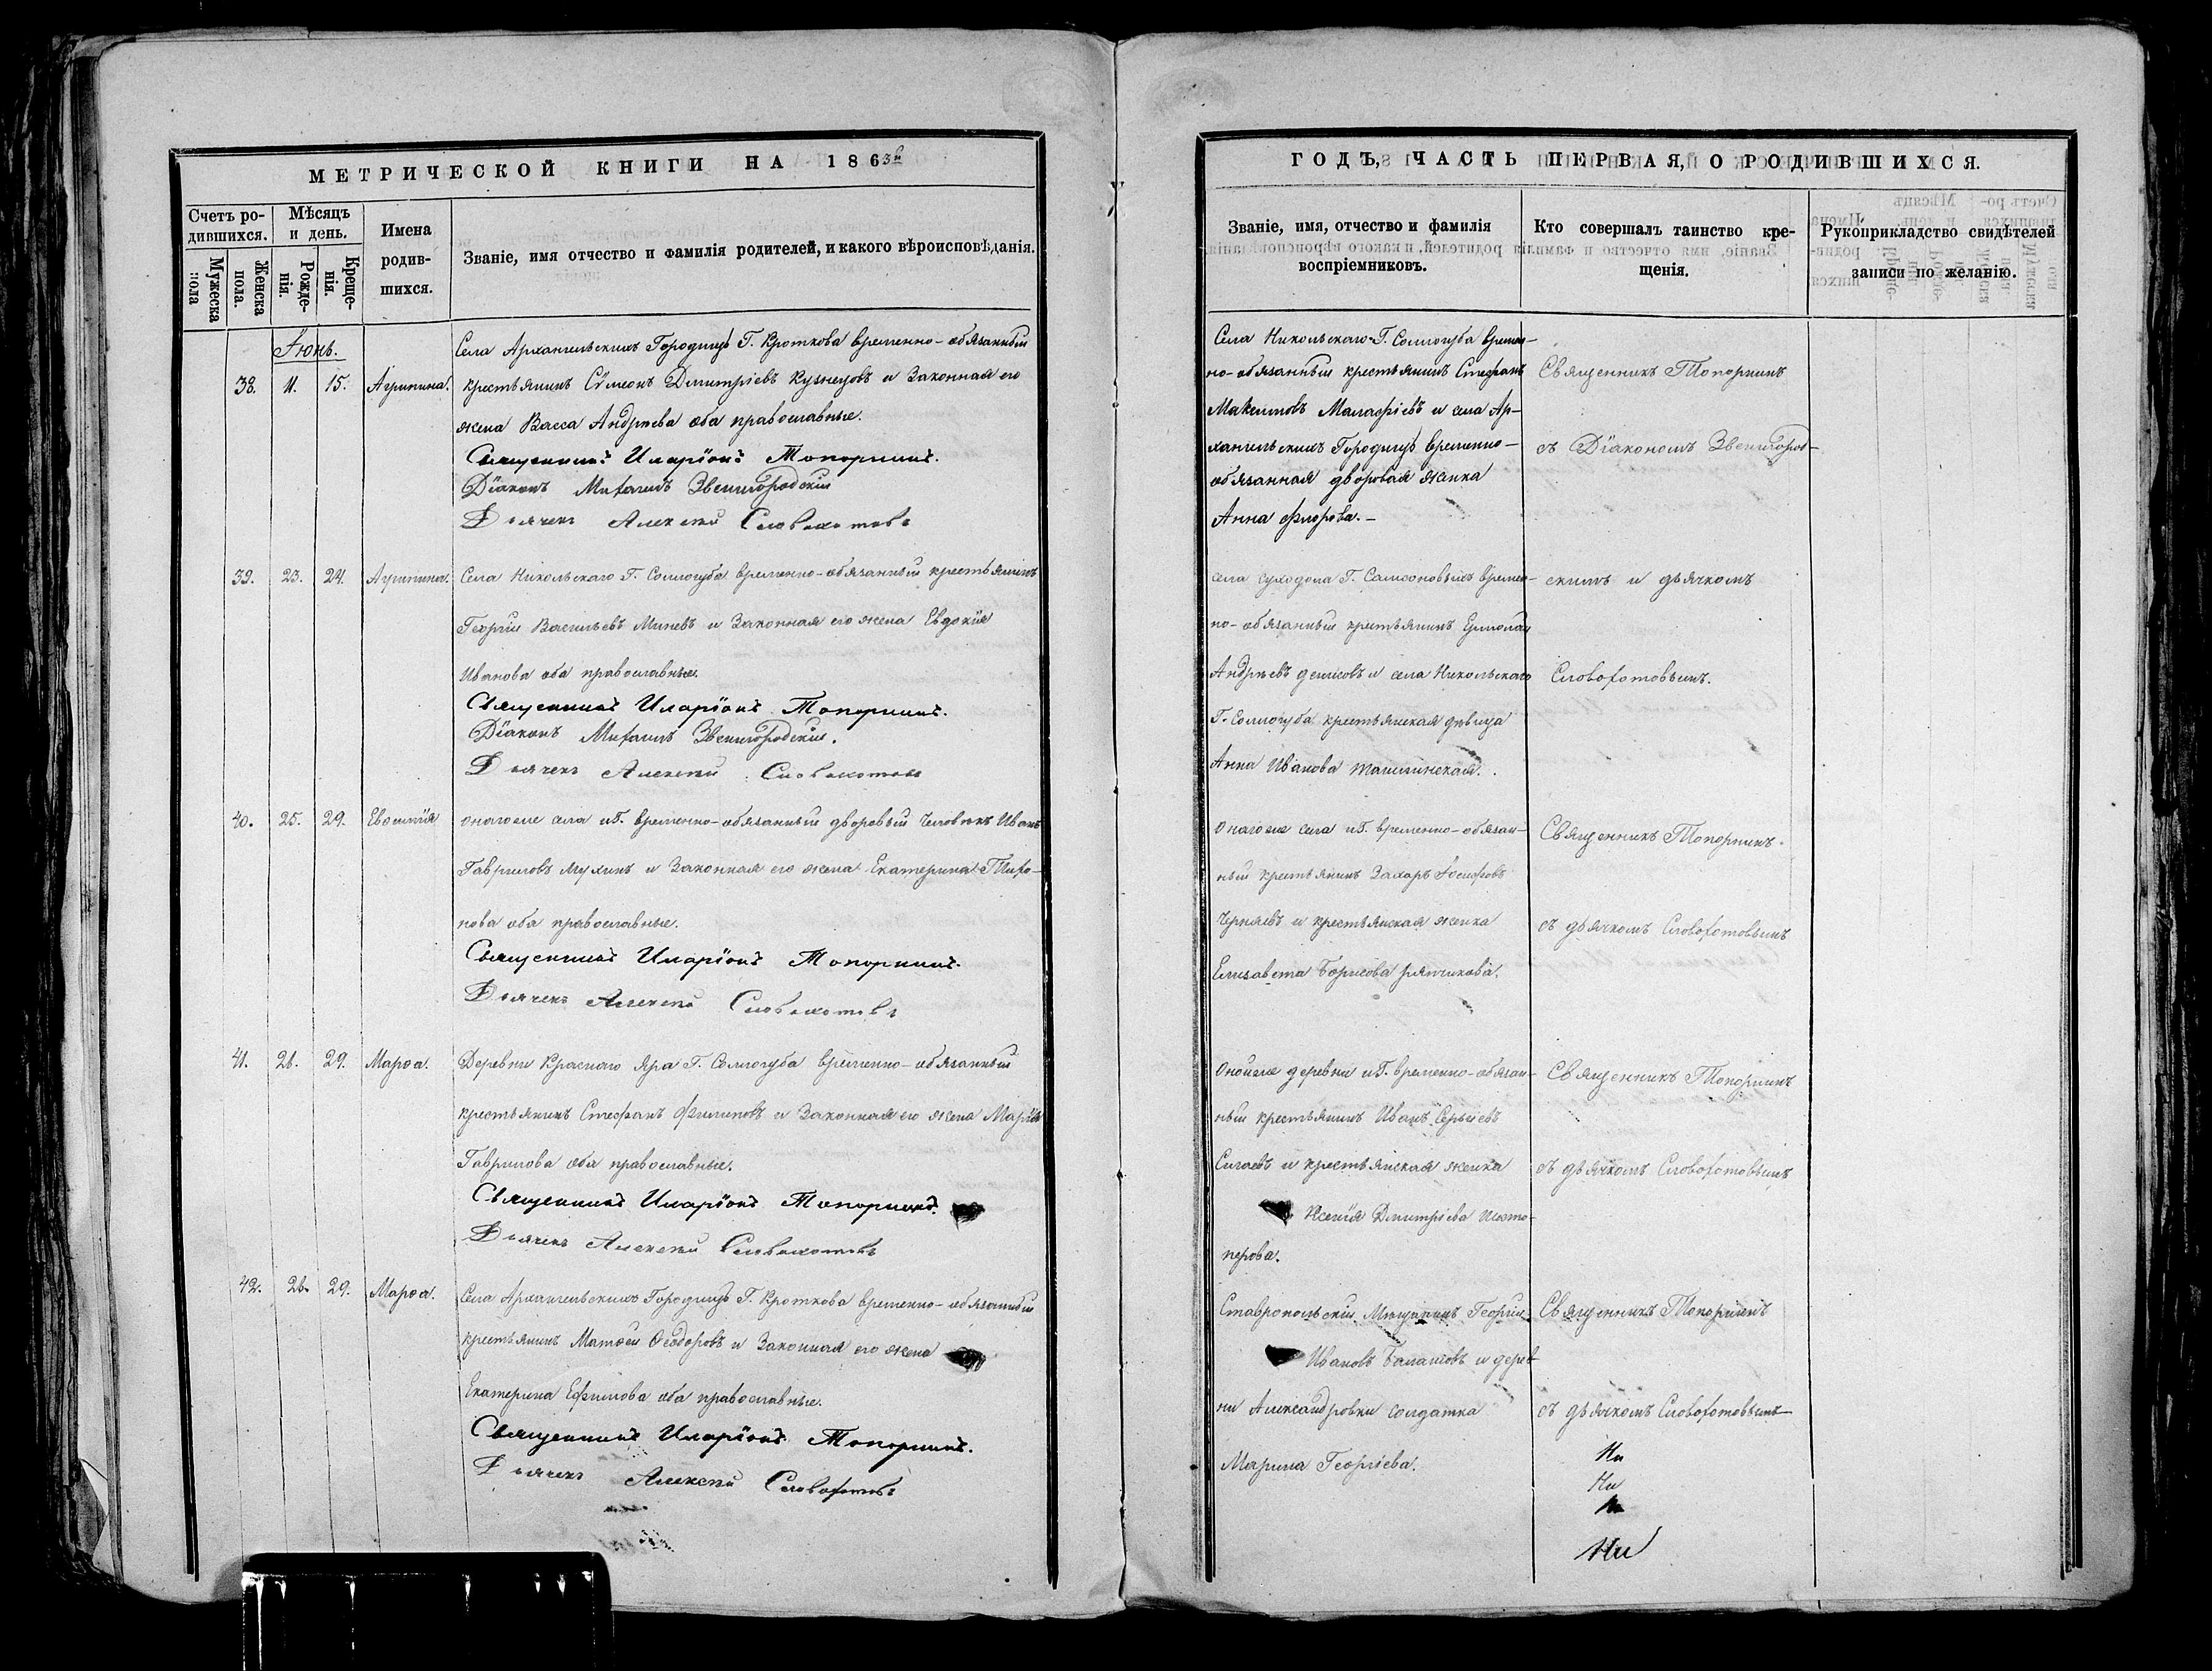 МЕТРИЧЕСКОЙ КНИГИ НА 1863й
Счетъ родившихся.
Мужеска пола
Женска пола.
Мѣсяцъ и день.
Рожденія.
Крещенія.
Имена родившихся.
Званіе, имя отчество и фамилія родителей, и какого вѣроисповѣданія.
Іюнь.
Села Архангельскихъ Городищъ Г. Кроткова временно-обязанный
38. 11. 15. Агрипина. крестьянинъ Сѵмеонъ Дмитріевъ Кузнецовъ и законная его
жена Васса Андреева оба православные.
Священникъ Иларіонъ Топорнинъ.
Діаконъ Михаилъ Звенигородскій
Дьячекъ Алексѣй Словохотовъ
39. 23. 24. Агрипина. Села Никольскаго Г. Соллогуба временно-обязанный крестьянинъ
Георгій Васильевъ Минѣевъ и законная его жена Евдокія
Иванова оба православные.
Священникъ Иларіонъ Топорнинъ.
Діаконъ Михаилъ Звенигородскій.
Дьячекъ Алексѣй Словохотовъ
40. 25. 29. Евѳимія онагоже села и Г. временно-обязанный дворовый человѣкъ Иванъ
Гавриловъ Мухинъ и законная его жена Екатерина Тихо-
нова оба православные.
Священникъ Иларіонъ Топорнинъ.
Дьячекъ Алексѣй Словохотовъ
41. 26. 29. Марѳа. Деревни Краснаго Яра Г. Соллогуба временно-обязанный
крестьянинъ Стефанъ Филиповъ и законная его жена Марія
Гаврилова оба православные.
Священникъ Иларіонъ Топорнинъ.
Дьячекъ Алексѣй Словохотовъ
42. 26. 29. Марѳа. Села Архангельскихъ Городищъ Г. Кроткова временно-обязанный
крестьянинъ Матѳей Ѳеодоровъ и законная его жена
Екатерина Ефимова оба православные.
Священникъ Иларіонъ Топорнинъ.
Дьячекъ Алексѣй Словохотовъ
ГОДЪ, ЧАСТЬ ПЕРВАЯ, О РОДИВШИХСЯ.
Званіе, имя, отчество и фамилія воспріемниковъ.
Кто совершалъ таинство крещенія.
Рукоприкладство свидѣтелей записи по желанію.
Села Никольскаго Г. Соллогуба времен-
но-обязанный крестьянинъ Стефанъ
Максимовъ Малафѣевъ и села Ар-
хангельскихъ Городищъ временно-
обязанная дворовая женка
Анна Флорова.
Священникъ Топорнинъ
съ Діакономъ Звенигород-
скимъ и дьячкомъ
Словохотовымъ.
села Суходола Г. Самсоновыхъ времен-
но-обязанный крестьянинъ Ермолай
Андреевъ Денисовъ и села Никольскаго
Г. Соллогуба крестьянская дѣвица
Анна Иванова
онагоже села и Г. временно-обязан-
ный крестьянинъ Захаръ Іосифовъ
Черняевъ и крестьянская женка
Елизавета Борисова
Священникъ Топорнинъ
съ дьячкомъ Словохотовымъ
Онойже деревни и Г. временно-обязан-
ный крестьянинъ Иванъ Сергѣевъ
Силаевъ и крестьянская женка
Ксенія Дмитріева Шесто-
перова.
Священникъ Топорнинъ
съ дьячкомъ Словохотовымъ
Ставропольскій Мѣщанинъ Георгій
Ивановъ Балашовъ и дерев-
ни Александровки солдатка
Марина Георгіева.
Священникъ Топорнинъ
съ дьячкомъ Словохотовымъ